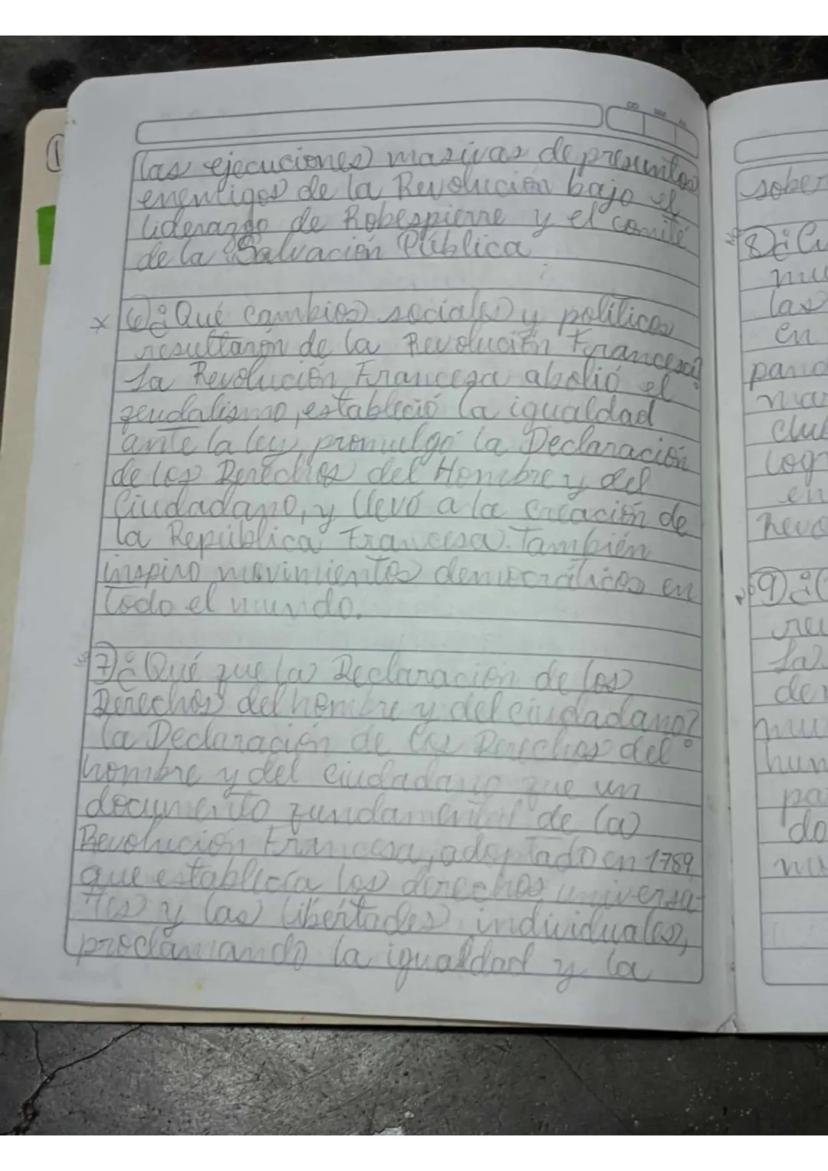 las ejecuciones masivas de presuntos
enemigos de la Revolución bajo el
liderazgo de Robespierre y el comité
de la Salvación Pública
6) ¿Qué cambios sociales y políticos
resultarón de la Revolución Francesa?
La Revolución Franceza abolió el
feudalismo, estableció la igualdad
ante la ley, promulgó la Declaración
de los Derechos del Hombre y del
Ciudadano, y llevó a la creación de
la República Francesa. También
inspiro movimientos democráticos en
todo el mundo.
7) ¿Qué fue la Declaración de los
Derechos del hombre y del ciudadano?
la Declaración de los Derechos del
hombre y del ciudadano fue un
documento fundamental de la
Revolución Francesa, adoptado en 1789
que establecía los derechos universa-
les y las libertades individuales,
proclamando la igualdad y la
sober
8) ¿Cu
mu
las
en
pand
mar
club
log
en
Revo
9) ¿C
re
La
der
mu
hum
pa
do